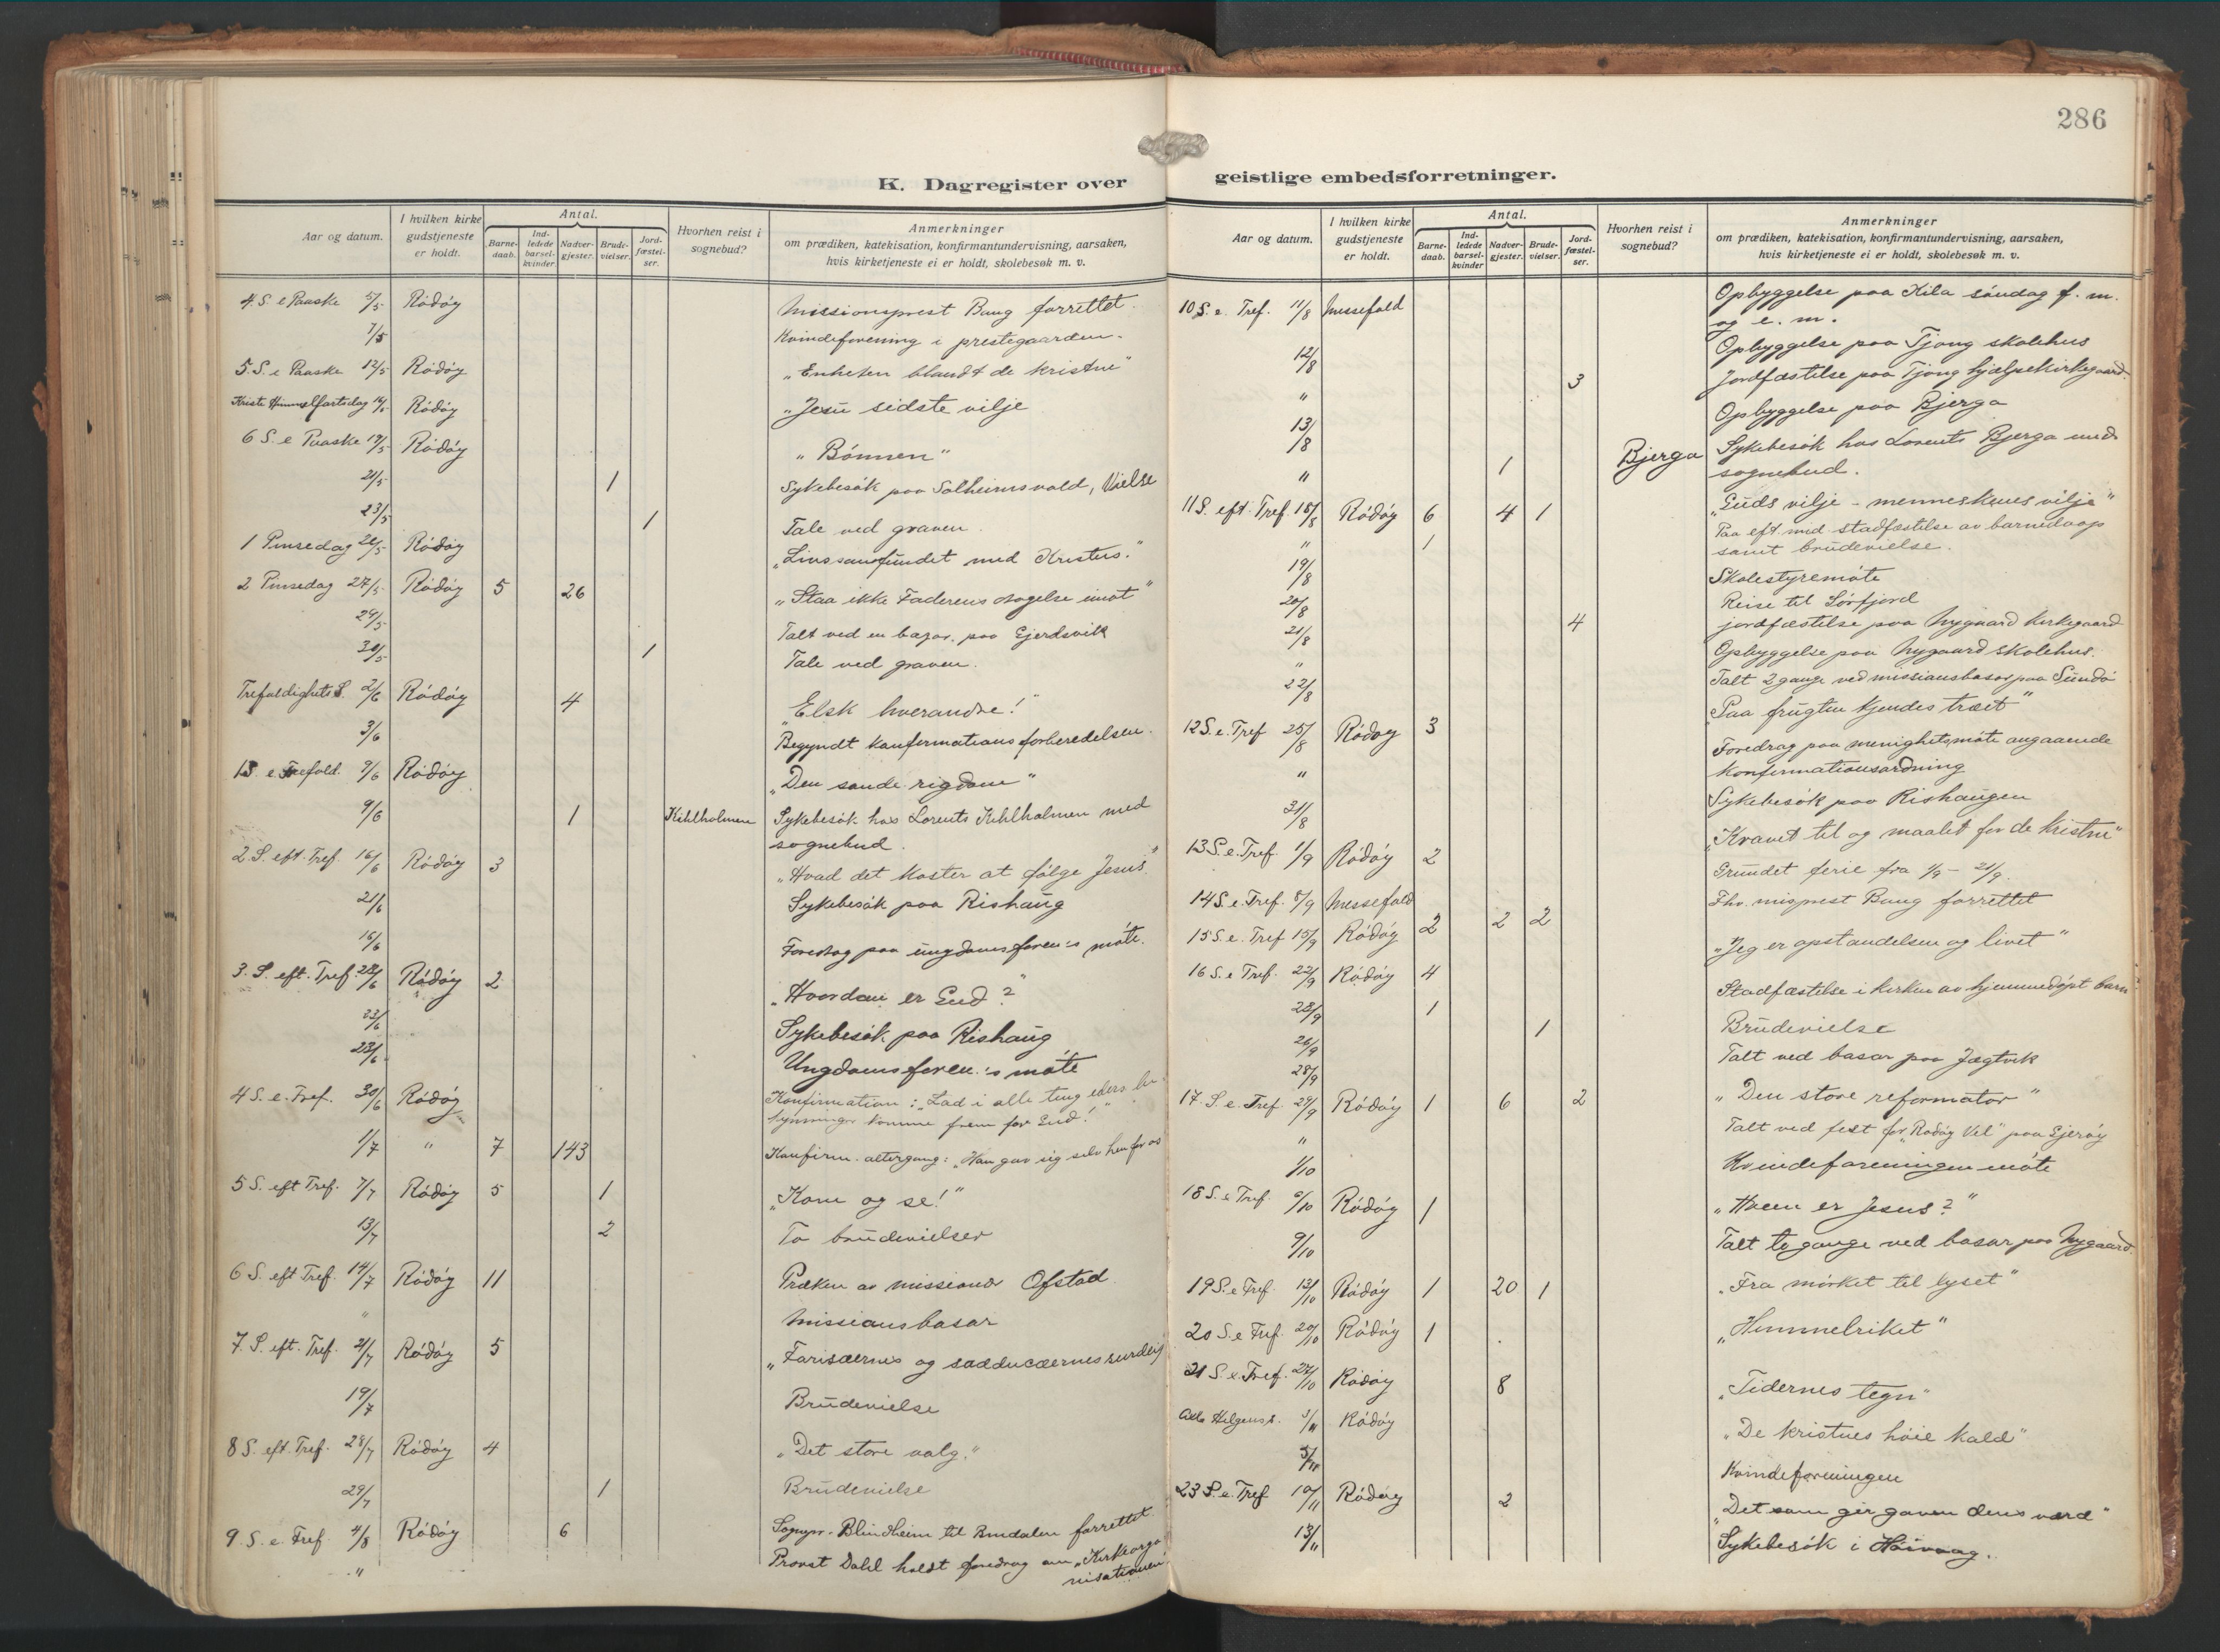 286
K. Dagregister over geistlige embedsforretninger.
Aar og datum. | I hvilken kirke gudstjeneste er holdt. | Antal. Barne-daab. | Ind-ledede barsel-kvinder. | Nadver-gjester. | Brude-vielser. | Jord-fæstel-ser. | Hvorhen reist i sognebud? | Anmerkninger om prædiken, katekisation, konfirmantundervisning, aarsaken, hvis kirketjeneste ei er holdt, skolebesøk m. v.
4. S. e Paaske 5/5 Rödöy Missionsprest Bang forrettet.
7/5 Kvindeforening i prestegaarden.
5. S. e Paaske 12/5 Rödöy „Enheten blandt de kristne"
Kristi Himmelfartsdag 16/5 Rödöy „Jesu sidste vilje
6 S. e Paaske 19/5 Rödöy „Bönnen"
21/5 1 Sykebesök paa Solheimsvold, Vielse
23/5 1 Tale ved graven.
1 Pinsedag 26/5 Rödöy „Livssamfundet med Kristus."
2 Pinsedag 27/5 Rödöy 5 26 „Staa ikke Faderens dragelse imot"
29/5 Talt ved en bazar paa Gjerdsvik
30/5 1 Tale ved graven.
Trefoldighets S. 2/6 Rödöy 4 „Elsk hverandre!"
3/6 Begyndt konfirmationsforberedelsen.
1 S. e Trefold. 9/6 Rödöy „Den sande rigdom"
9/6 1 Kihlholmen Sykebesök hos Lorents Kihlholmen med
sognebud.
2. S. eft. Tref. 16/6 Rödöy 3 „Hvad det koster at fölge Jesus"
21/6 Sykebesök paa Rishaug
16/6 Foredrag paa ungdomsforen:s möte.
3. S. eft. Tref. 23/6 Rödöy 2 „Hvordan er Gud?"
23/6 Sykebesök paa Rishaug
23/6 Ungdomsforen:s möte
4 S. e. Tref. 30/6 Rödöy Konfirmation: „Lad i alle ting eders be-
gjæringer komme frem for Gud!"
1/7 " 7 143 Konfirm. altergang: „Han gav sig selv hen for os
5 S. eft Tref. 7/7 Rödöy 5 1 „Kom og se!"
13/7 2 To brudevielser
6 S. eft Tref. 14/7 Rödöy 11 Præken av missionær Ofstad
" Missionsbasar
7. S. eft. Tref. 21/7 Rödöy 5 „Farisæernes og sadducæernes surdeig
19/7 Brudevielse
8 S. eft. Tref. 28/7 Rödöy 4 „Det store valg."
29/7 1 Brudevielse
9. S. e. Tref. 4/8 Rödöy 6 Sognepr. Blindheim til Bindalen forrettet.
" Provst Dahl holdt foredrag om „Kirkeorga-
nisationen"
Aar og datum. | I hvilken kirke gudstjeneste er holdt. | Antal. Barne-daab. | Ind-ledede barsel-kvinder | Nadver-gjester. | Brude-vielser. | Jord-fæstel-ser. | Hvorhen reist i sognebud? | Anmerkninger om prædiken, katekisation, konfirmantundervisning, aarsaken, hvis kirketjeneste ei er holdt, skolebesøk m. v.
10 S. e. Tref. 11/8 Messefald Opbyggelse paa Kila söndag f. m.
og e. m.
12/8 Opbyggelse paa Tjong skolehus
" 3 Jordfæstelse paa Tjong hjælpekirkegaard.
13/8 Opbyggelse paa Bjerga
" 1 Bjerga Sykebesök hos Lorents Bjerga med
sognebud.
11 S. eft. Tref 18/8 Rödöy 6 4 1 „Guds vilje – menneskenes vilje"
" 1 Paa eft.mid stadfæstelse av barnedaap
samt brudevielse.
19/8 Skolestyremöte
20/8 Reise til Sörfjord
21/8 4 jordfæstelse paa Nygaard kirkegaard
" Opbyggelse paa Nygaard skolehus.
22/8 Talt 2 gange ved missionsbasar paa Sundö
12 S. e. Tref 25/8 Rödöy 3 „Paa frugten kjendes træet"
" Foredrag paa menighetsmöte angaaende
konfirmationsordning
31/8 Sykebesök paa Rishaugen
13 S. e. Tref. 1/9 Rödöy 2 „Kravet til og maalet for de kristne"
14 S. e. Tref. 8/9 Messefald Grundet ferie fra 1/9 – 21/9.
15 S. e. Tref 15/9 Rödöy 2 2 2 Fhv. misprest Bang forrettet
16 S. e Tref. 22/9 Rödöy 4 „Jeg er opstandelsen og livet"
23/9 1 Stadfæstelse i kirken av hjemmedöpt barn
26/9 1 Brudevielse
28/9 Talt ved basar paa Jægtvik
17. S. e. Tref. 29/9 Rödöy 1 6 2 „Den store reformator"
" Talt ved fest for „Rödöy Vel" paa Gjeröy
1/10 Kvindeforeningen möte
18 S. e Tref. 6/10 Rödöy 1 „Hvem er Jesus?"
9/10 Talt to gange ved basar paa Nygaard.
19 S. e Tref. 13/10 Rödöy 1 20 1 „Fra mörket til lyset"
20 S. e Tref. 20/10 Rödöy 1 „Himmelriket"
21 S. e. Tref. 27/10 Rödöy 8 „Tidernes tegn"
Alle Helgens s. 3/11 Rödöy „De kristnes höie kald"
5/11 Kvindeforeningen
23 S. e. Tref 10/11 Rödöy 2 „Det som gir gaven dens værd"
13/11 Sykebesök i Höivaag.